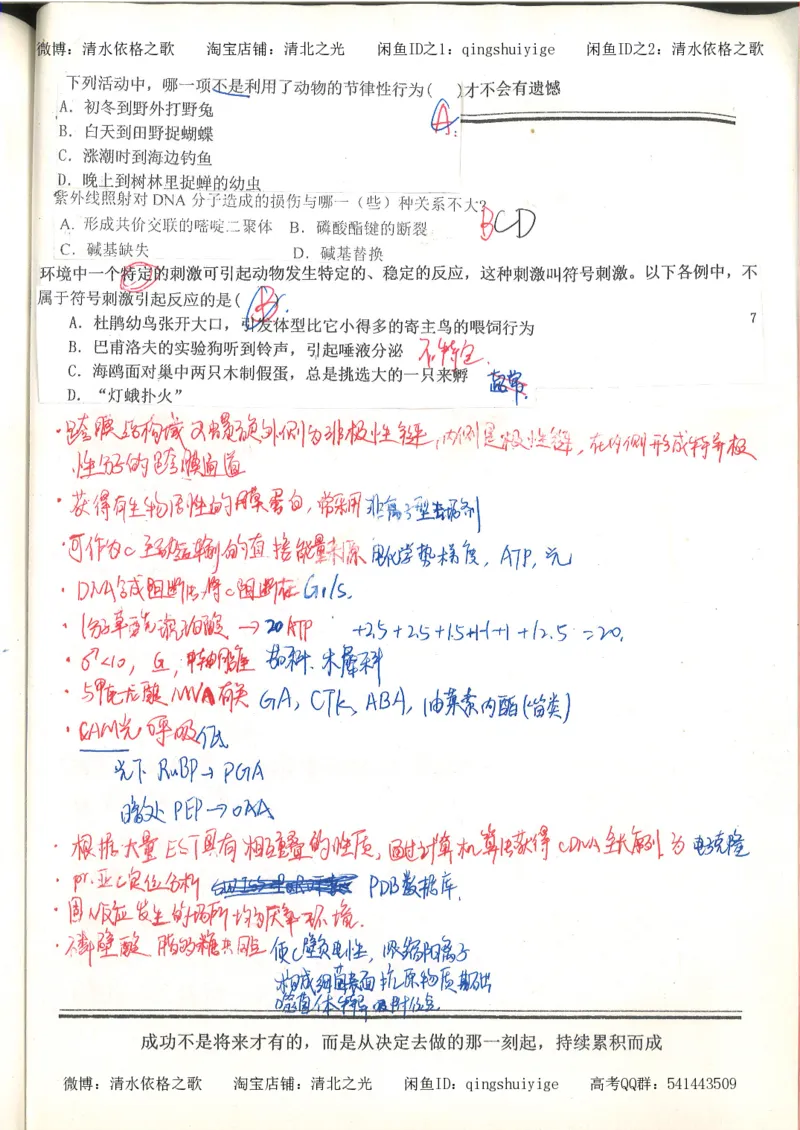 微博：清水依格之歌 淘宝店铺：清北之光 闲鱼ID之1：qingshuiyige 闲鱼ID之2：清水依格之歌
下列活动中，哪一项不是利用了动物的节律性行为( )才不会有遗憾
A．初冬到野外打野兔
A
B．白天到田野捉蝴蝶
C．涨潮时到海边钓鱼
D．晚上到树林里捉蝉的幼虫
紫外线照射对 DNA 分子造成的损伤与哪一（些）种关系不大？
A. 形成共价交联的嘧啶二聚体 B．磷酸酯键的断裂
BCD
C．碱基缺失 D．碱基替换
环境中一个特定的刺激可引起动物发生特定的、稳定的反应，这种刺激叫符号刺激。以下各例中，不
属于符号刺激引起反应的是( B ).
7
A．杜鹃幼鸟张开大口，引发体型比它小得多的寄主鸟的喂饲行为
B．巴甫洛夫的实验狗听到铃声，引起唾液分泌 不特定.
C．海鸥面对巢中两只木制假蛋，总是挑选大的一只来孵 超常.
D．“灯蛾扑火”
·跨膜结构域 α螺旋外侧为非极性链，内侧是极性链，在内侧形成特异极
性分子的跨膜通道
·获得有生物活性的膜蛋白，常采用非离子型去垢剂
·可作为c主动运输的直接能量来源 电化学势梯度，ATP，光
·DNA合成阻断法，将c阻断在G1/S.
·1分子草酰琥珀酸 → 20ATP +2.5+2.5+1.5+1-1+1+12.5=20.
·♂<10, G, 中轴胎座 茄科.木犀科
·与甲羟戊酸MVA有关 GA，CTK，ABA，油菜素内酯(甾类)
·CAM光呼吸低
光下 RuBP→PGA
暗处 PEP→OAA
·根据大量EST具有相互重叠的性质，通过计算机算法获得cDNA全长序列为 电子克隆
·pr.亚c定位分析 PDB数据库.
·固N反应发生的场所均为厌氧环境.
·磷壁酸 脂多糖共同点 使c壁负电性，吸附阳离子
构成细菌表面抗原物质基础
噬菌体特异吸附位点
成功不是将来才有的，而是从决定去做的那一刻起，持续累积而成
微博：清水依格之歌 淘宝店铺：清北之光 闲鱼ID：qingshuiyige 高考QQ群：541443509